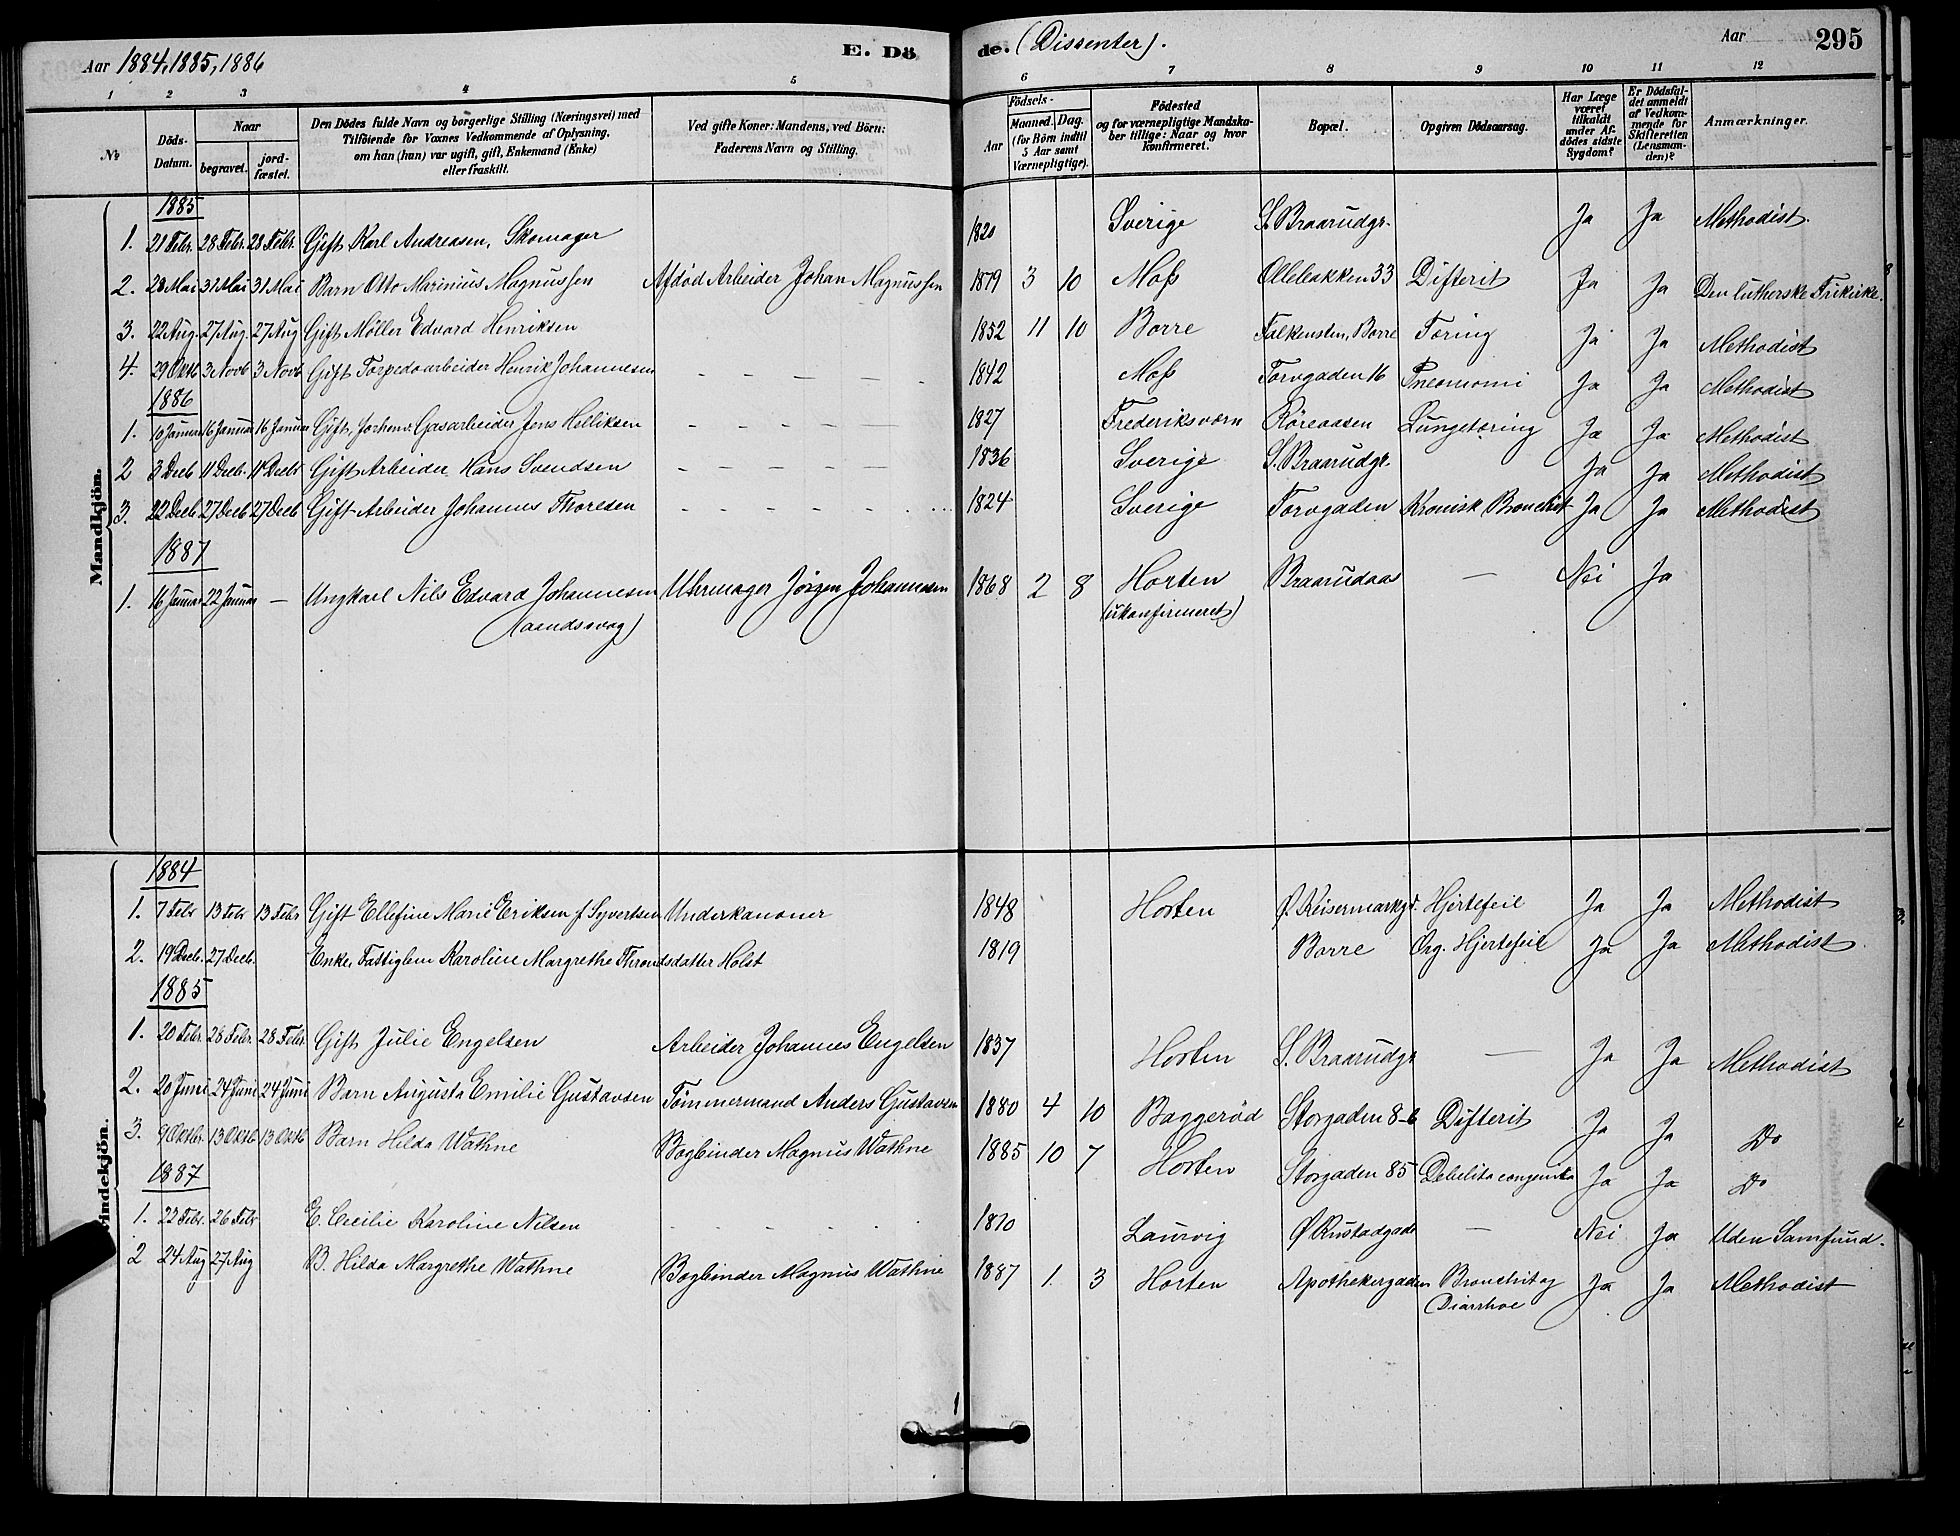 Aar 1884, 1885, 1886 E. Dö de. (Dissenter). Aar 295
1 2 3 4 5 6 7 8 9 10 11 12
No
Döds-Datum.
Naar
begravet.
jord-fæstet.
Den Dödes fulde Navn og borgerlige Stilling (Næringsvei) med
Tilföiende for Voxnes Vedkommende af Oplysning,
om han (hun) var ugift, gift, Enkemand (Enke)
eller fraskilt.
Ved gifte Koner: Mandens, ved Börn:
Faderens Navn og Stilling.
Födsels-
Aar
Maaned. Dag.
(for Börn indtil
5 Aar samt
Værnepligtige).
Födested
og for værnepligtige Mandska-
ber tillige: Naar og hvor
konfirmeret.
Bopæl.
Opgiven Dödsaarsag.
Har Læge
været
tilkaldt
under Af-
dödes sidste
Sygdom?
Er Dödsfal-
det anmeldt
af Vedkom-
mende for
Skifteretten
(Lensman-
den)?
Anmærkninger.
Mandkjön.
1885
1. 21 Febr. 28 Febr. 28 Febr. Gift Karl Andreasen, Skomager 1820 Sverige S. Braarudgr. Ja Ja Methodist.
2. 28 Mai 31 Mai 31 Mai Barn Otto Marinius Magnussen Afdød Arbeider Johan Magnussen 1879 3 10 Moss Ollebakken 33 Difterit Ja Ja Den lutherske Frikirke.
3. 22 Aug. 27 Aug. 27 Aug Gift Møller Edvard Henriksen 1852 11 10 Borre Falkensten, Borre Tæring Ja Ja Methodist
4. 29 Oktb 3 Novb 3 Novb Gift Torpedoarbeider Henrik Johannesen - - - - - 1842 Moss Torvgaden 16 Pneomomi Ja Ja Methodist
1886
1. 10 Januar 16 Januar 16 Januar Gift, forhenv. Gasarbeider Jens Helliksen - - - - - 1827 Frederiksværn Röreaasen Lungetæring Ja Ja Methodist
2 3 Decb 11 Decb. 11 Decbr Gift Arbeider Hans Svendsen - - - - - 1836 Sverige S. Braarudgr. Ja Ja Methodist
3. 22 Decb 27 Decb 27 Decb Gift Arbeider Johannes Thoresen - - - - - 1824 Sverige Torvgaden Kronisk Bronchit Ja Ja Methodist
1887
1. 16 Januar 22 Januar — Ungkarl Nils Edvard Johannesen Uhrmager Jørgen Johannesen 1868 2 8 Horten Braarudaas — Nei Ja
(aandssvag) (ukonfirmeret)
indekjön.
1884
1. 7 Febr 13 Febr 13 Febr Gift Ellefine Marie Eriksen f. Syvertsen Underkanoner 1848 Horten Ø. Keisermarkgr. Hjertefeil Ja Ja Methodist
2. 19 Decb. 27 Decb. Enke, Fattiglem Karoline Margrethe Throndsdatter Holst 1819 Borre Org. Hjertefeil Ja Ja Methodist
1885
1. 20 Febr. 28 Febr. 28 Febr. Gift Julie Engelsen Arbeider Johannes Engelsen 1837 Horten S. Braarudgr — Ja Ja Methodist
2. 20 Juni 24 Juni 24 Juni Barn Augusta Emilie Gustavsen Tømmermand Anders Gustavsen 1880 4 10 Baggerød Storgaden 8-6 Difterit Ja Ja Do
3. 9 Oktbr. 13 Oktb 13 Oktb Barn Hilda Wathne Bogbinder Magnus Wathne 1885 10 7 Horten Storgaden 85 Debilita congenita Ja Ja Do
1887
1. 22 Febr. 26 Febr E. Cecilie Karoline Nilsen - - - - - 1810 Laurvig Ø Rustadgade — Nei Ja Uden Samfund.
2 24 Aug 27 Aug B. Hilda Margrethe Wathne Bogbinder Magnus Wathne 1887 1. 3 Horten Apothekergaden Bronchit og Ja Ja Methodist
Diarrhoe